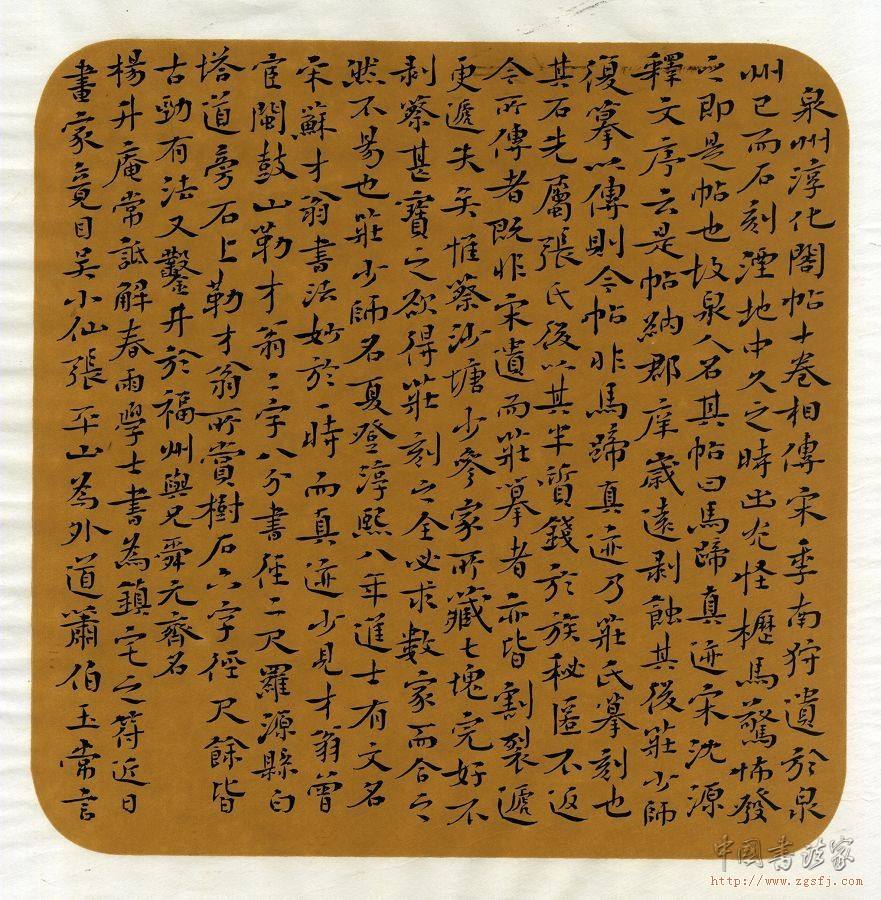 泉州淳化閣帖十卷相傳宋季南狩遺於泉
州已而石刻湮地中久之時出光怪櫪馬驚怖發
之即是帖也故泉人名其帖曰馬蹄真迹宋沈源
釋文序云是帖納郡庠歲遠剥蝕其後莊少師
復摹以傳則今帖非馬蹄真迹乃莊氏摹刻也
其石先屬張氏後以其半質錢於族秘匿不返
今所傳者既非宋遺而莊摹者亦皆割裂遞
更遞失矣惟蔡沙塘少參家所藏七塊完好不
剥蔡甚寶之欲得莊刻之全必求數家而合之
然不易也莊少師名夏登淳熙八年進士有文名
宋蘇才翁書法妙於一時而真迹少見才翁曾
宦閩鼓山勒才翁二字八分書徑二尺羅源縣白
塔道旁石上勒才翁所賞樹石六字徑尺餘皆
古勁有法又鑿井於福州與兄舜元齊名
楊升庵常詆解春雨學士書為鎮宅之符近日
畫家竟目吴小仙張平山為外道蕭伯玉常言
中國書法家
http://www.zgsfj.com